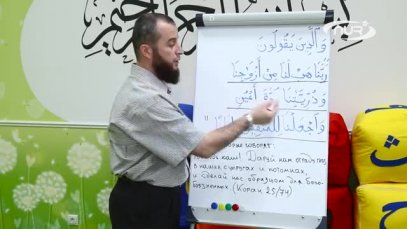 وَالَّذِينَ يَقُولُونَ
رَبَّنَا هَبْ لَنَا مِنْ أَزْوَٰجِنَا
وَذُرِّيَّٰتِنَا قُرَّةَ أَعْيُنٍ
وَٱجْعَلْنَا لِلْمُتَّقِينَ
говорят:
наш! Даруй нам отраду
в наших супругах и потомках,
и сделай нас образцом для бого-
боязненных (Коран 25/74)